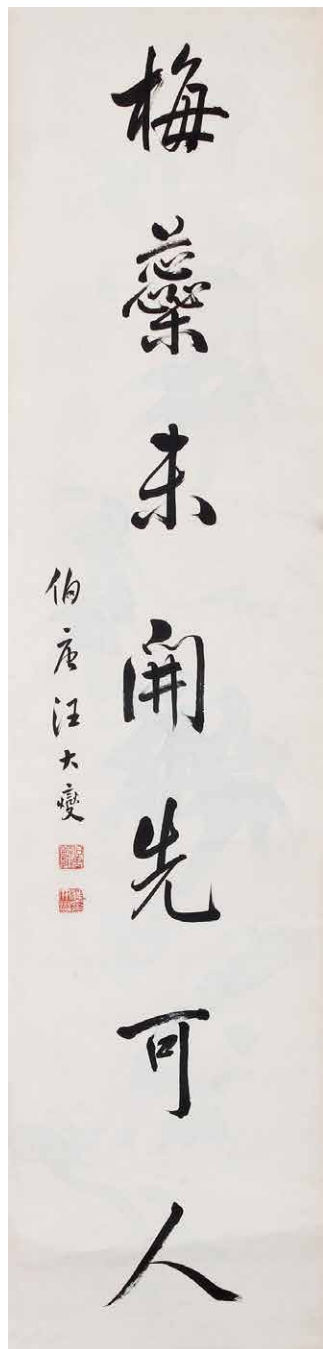 梅蘂未開先可人
伯唐汪大燮